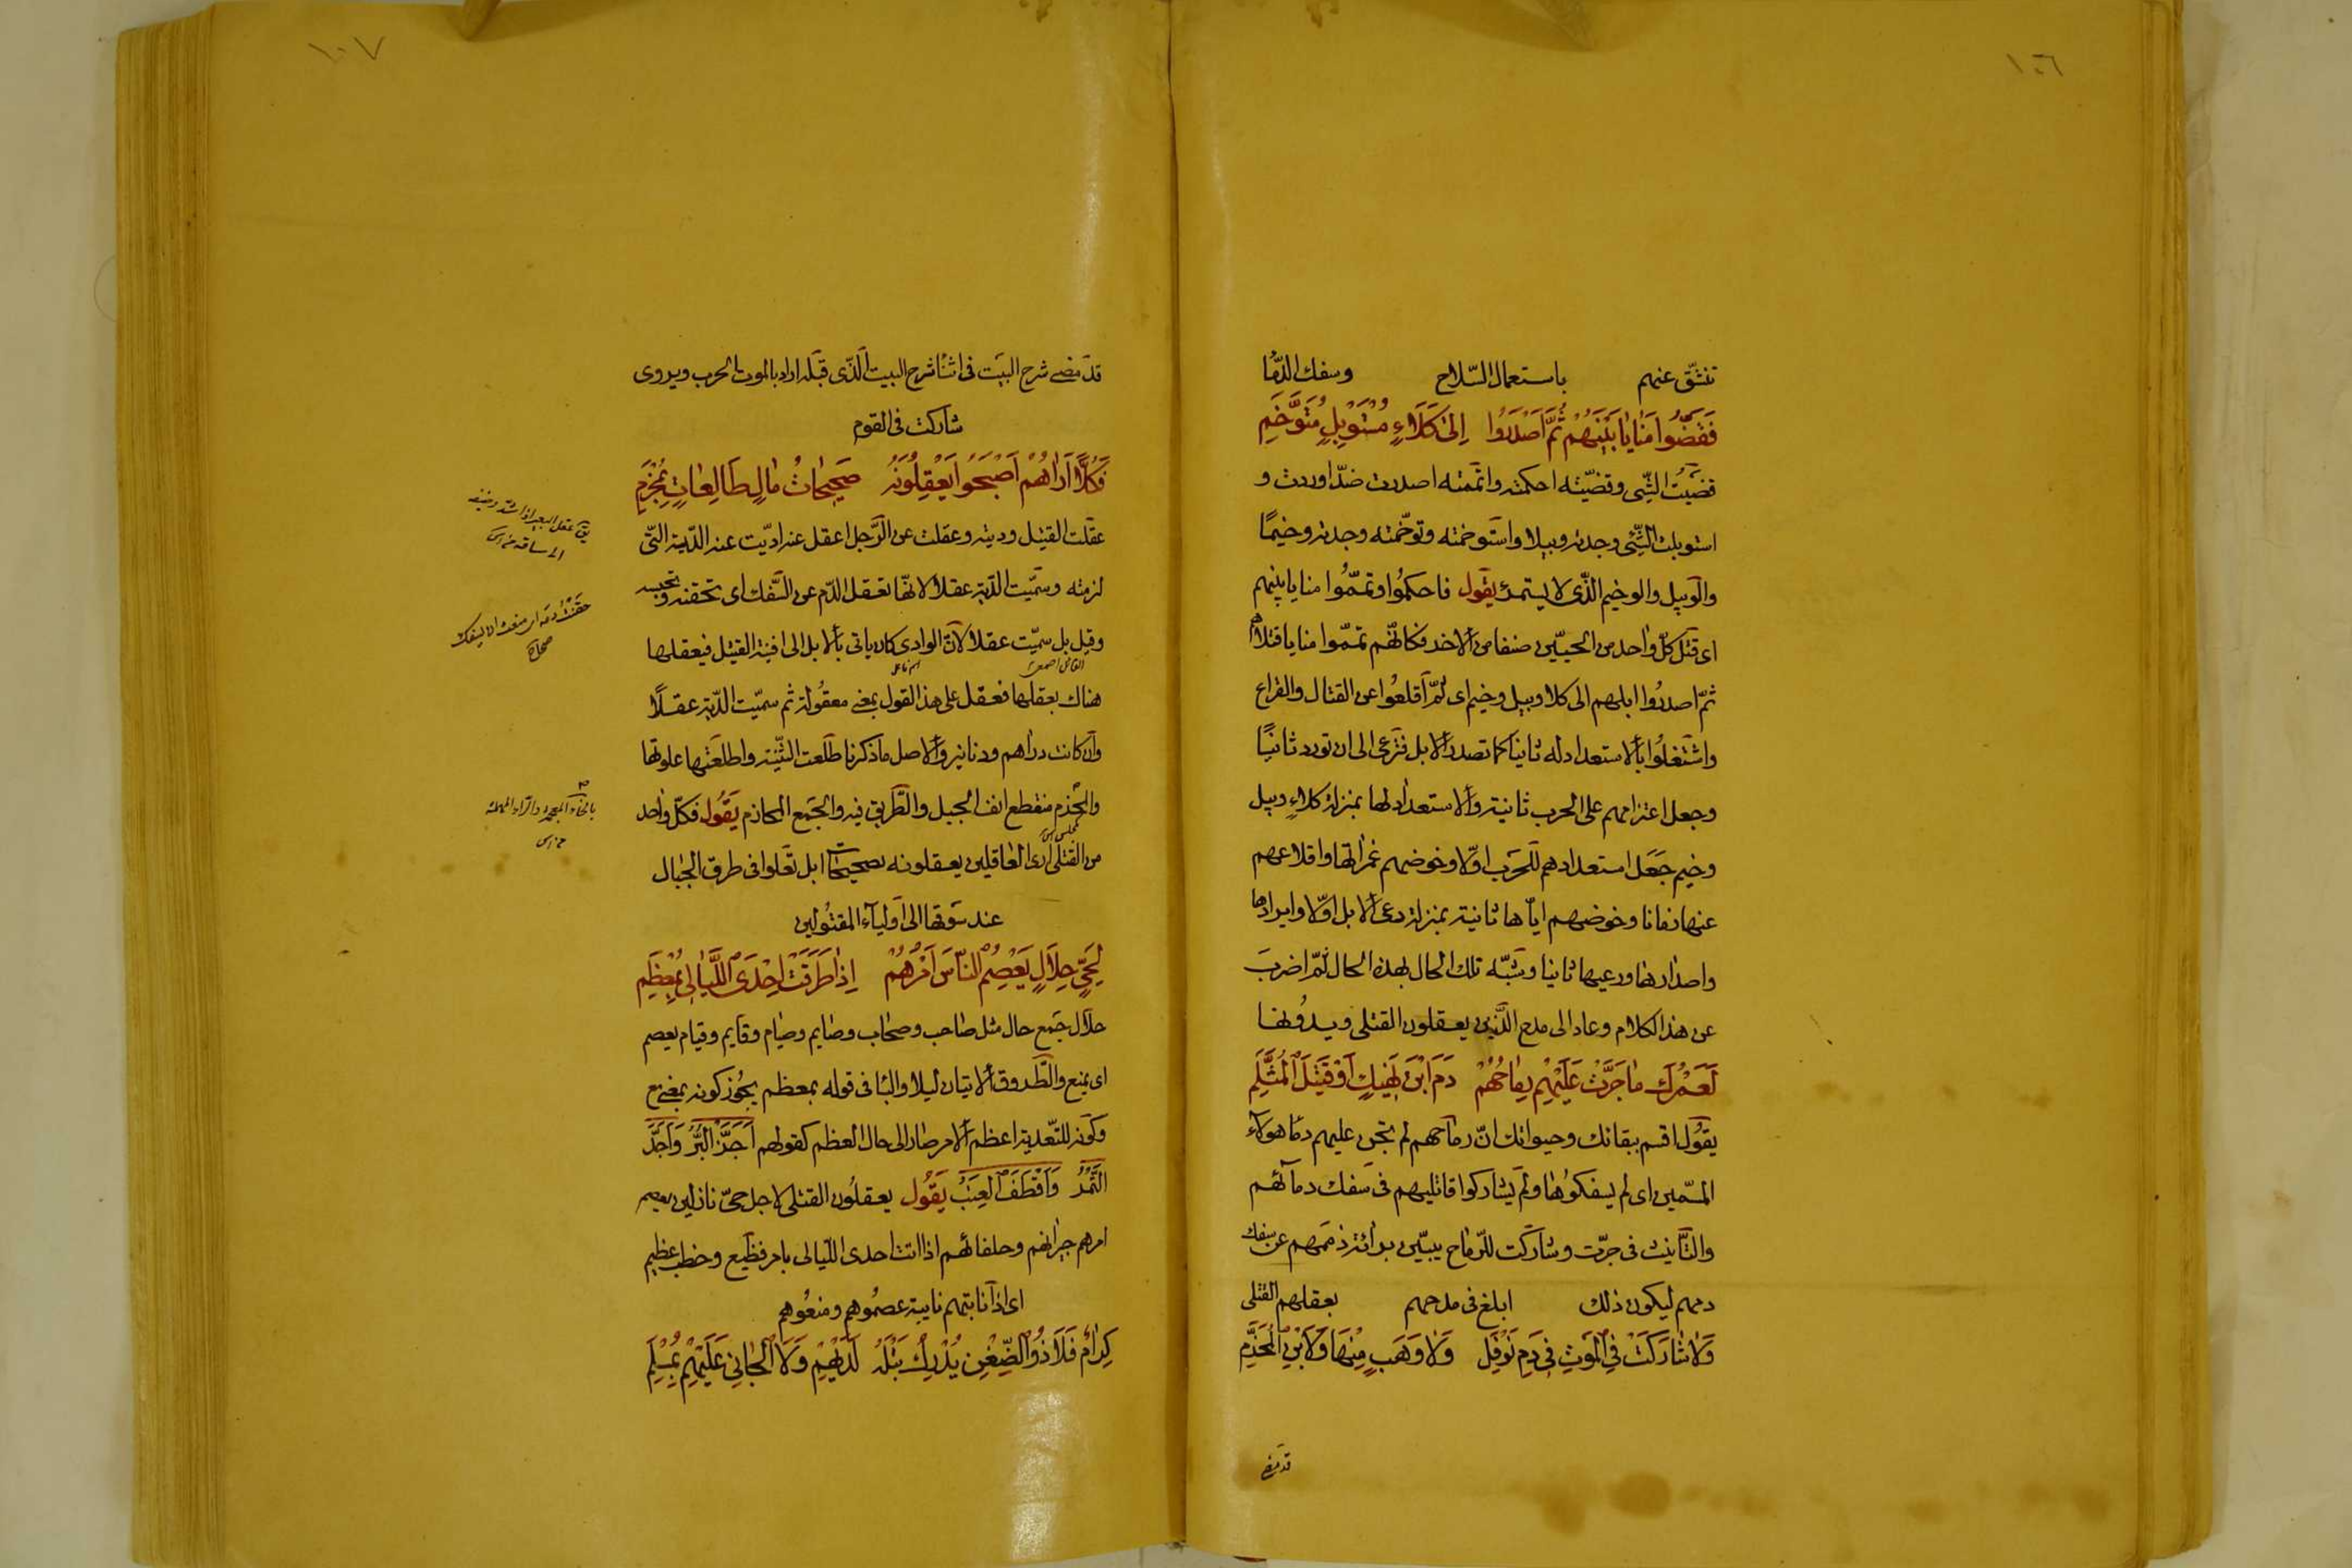 ١٠٦
تنشقّ عنهم باستعمال السّلاح وسفك الدّما
فَقَضَّوْا مَنَايَا بَيْنَهُمْ ثُمَّ اَصْدَرُوا اِلىٰ كَلَاءٍ مُسْتَوْبِلٍ مُتَوَخَّمِ
قضيت الشّيى وقضّيته احكمته واتممته اصدرت ضدّ اوردت و
استوبلت الشّيئى وجدته وبيلا واستوخمته وتوخّمته وجدته وخيمًا
والوبيل والوخيم الذّى لا يستمرئ يقول فاحكمُوا وتمّمُوا منايا بينهم
اى قتل كلّ واحد من الحيّين صنفا من الاخر فكانّهم تمّموا منايا قتلاهم
ثمّ اصدرُوا ابلهم الى كلا وبيل وخيم اى ثمّ اقلعُوا عن القتال والقراع
واشتغلُوا بالاستعداد له ثانيا كما تصدر الابل فترعى الى ان تورد ثانيًا
وجعل اعتزامهم على الحرب ثانية والاستعداد لها بمنزلة كلاءٍ وبيل
وخيم جَعَل استعدادهم للحَرب اوّلا وخوضهم غمراتها واقلاعهم
عنها زمانا وخوضهم ايّاها ثانية بمنزلة رعى الابل اوّلا وايرادها
واصدارها ورعيها ثانيا وشبّه تلك الحال بهذه الحال ثمّ اضربَ
عن هذا الكلام وعاد الى مدح الذّين يعقلون القتلى ويدُونها
لَعَمْرُكَ مَا جَرَّتْ عَلَيْهِمْ رِمَاحُهُمْ دَمَ ابْنَ نَهِيكٍ اَوْ قَتِيلَ الْمُثَلَّمِ
يقوُل اقسم ببقائك وحيواتك انّ رماحهم لم تجن عليهم دمٰا هولاء
المسمّين اى لم يسفكوُها ولم يشاركوا قاتليهم فى سفك دمائهم
والتّانيث فى جرّت وشاركت للرّماح يبيّن برائة ذممهم عن سفك
دمهم ليكون ذلك ابلغ فى مدحهم بعقلهم القتلى
وَلَا شَارَكَتْ فِى الْمَوتِ فِى دَمِ نَوْفَلٍ وَلَا وَهَبٍ مِنْهَا وَلَا بْنِ الْمُخَزَّمِ
قد مضى
١٠٧
قد مضى شرح البيت فى اثناء شرح البيت الّذى قبله اراد بالموت الحرب ويروى
شاركت فى القوم
فَكُلًّا اَرَاهُمْ اَصْبَحُوا يَعْقِلُونَهُ صَحِيحَاتُ مَالٍ طَالِعَاتٍ بِمَخْرِمِ
عقلت القتيل وديته وعقلت عن الرّجل اعقل عنه ادّيت عنه الدّية التّى
لزمته وسمّيت الدّية عقلا لانّها تعقل الدّم عن السّفك اى تحقنه وتحبسه
وقيل بل سمّيت عقلا لانّ الوادى كان ياتى بالابل الى افنية القتيل فيعقلها
هناك بعقلها فعقل على هذا القول بمعنى معقُولة ثم سمّيت الدّية عقلًا
وان كانت دراهم ودنانير والاصل ما ذكرنا طلعت الثنيّة واطلعتها علوتها
والمخرم منقطع انف الجبل والطّريق فيه والجمع المخارم يقُول فكلّ واحد
من القتلى ارى العاقلين يعقلونه بصحيحات ابل تعلوا فى طرق الجبال
عند سوقها الى اوليآء المقتُولين
لِحَىٍّ حِلَالٍ يَعْصِمُ النّاسَ اَمْرُهُمْ اِذَا طَرَقَتْ اِحْدَى اللَّيَالِى بِمُعْظَمِ
حلال جمع حال مثل صاحب وصحاب وصايم وصيام وقايم وقيام يعصم
اى يمنع والطّروق الاتيان ليلا والبا فى قوله بمعظم يجُوز كونه بمعنى مع
وكونه للتّعدية اعظم الامر صار الى حال العظم كقولهم اَجَزَّ البُرُّ وَاَجَدَّ
التَّمْرُ وَاَقْطَفَ العِنَبُ يَقُول يعقلُون القتلى لاجل حىّ نازلين يعصم
امرهم جيرانهم وحلفائهم اذا اتت احدى اللّيالى بامر فظيع وخطب عظيم
اى اذا نابتهم نايبة عصمُوهم ومنعُوهم
كِرَامٌ فَلَا ذُو الضِّغْنِ يُدْرِكُ تَبْلَهُ لَدَيْهِمْ وَلَا الْجَانِى عَلَيْهِمْ بِمُسْلَمِ
حقنت دمه اى منعت ان يسفك
صحاح
بالخاء المعجمة والرّاء المهملة